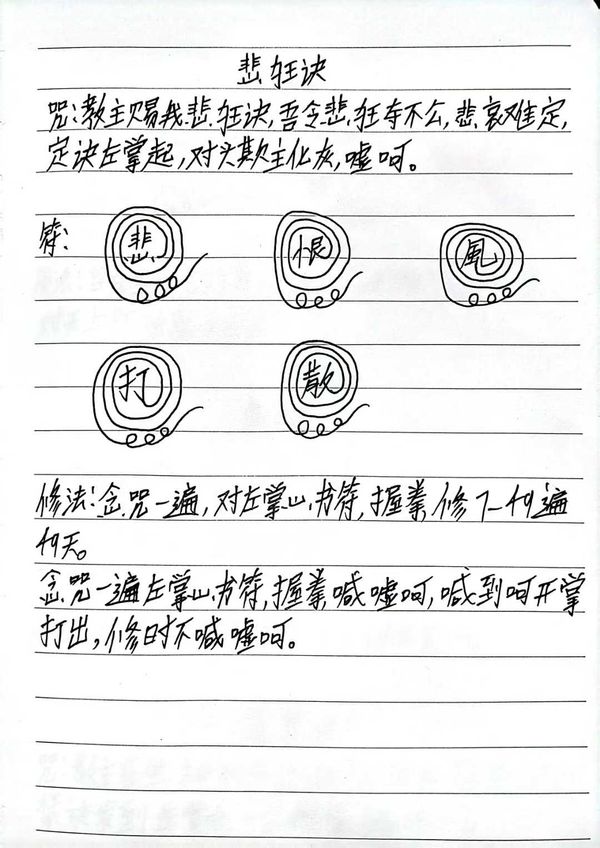 悲狂诀
咒:教主赐我悲狂诀,吾令悲狂夺不公,悲哀难定,
定诀左掌起,对头欺主化灰,嘘呵。
符:
悲 恨 風
打 散
修法:念咒一遍,对左掌心书符,握拳,修下49遍
49天。
念咒一遍左掌心书符,握拳喊嘘呵,喊到呵开掌
打出,修时不喊嘘呵。